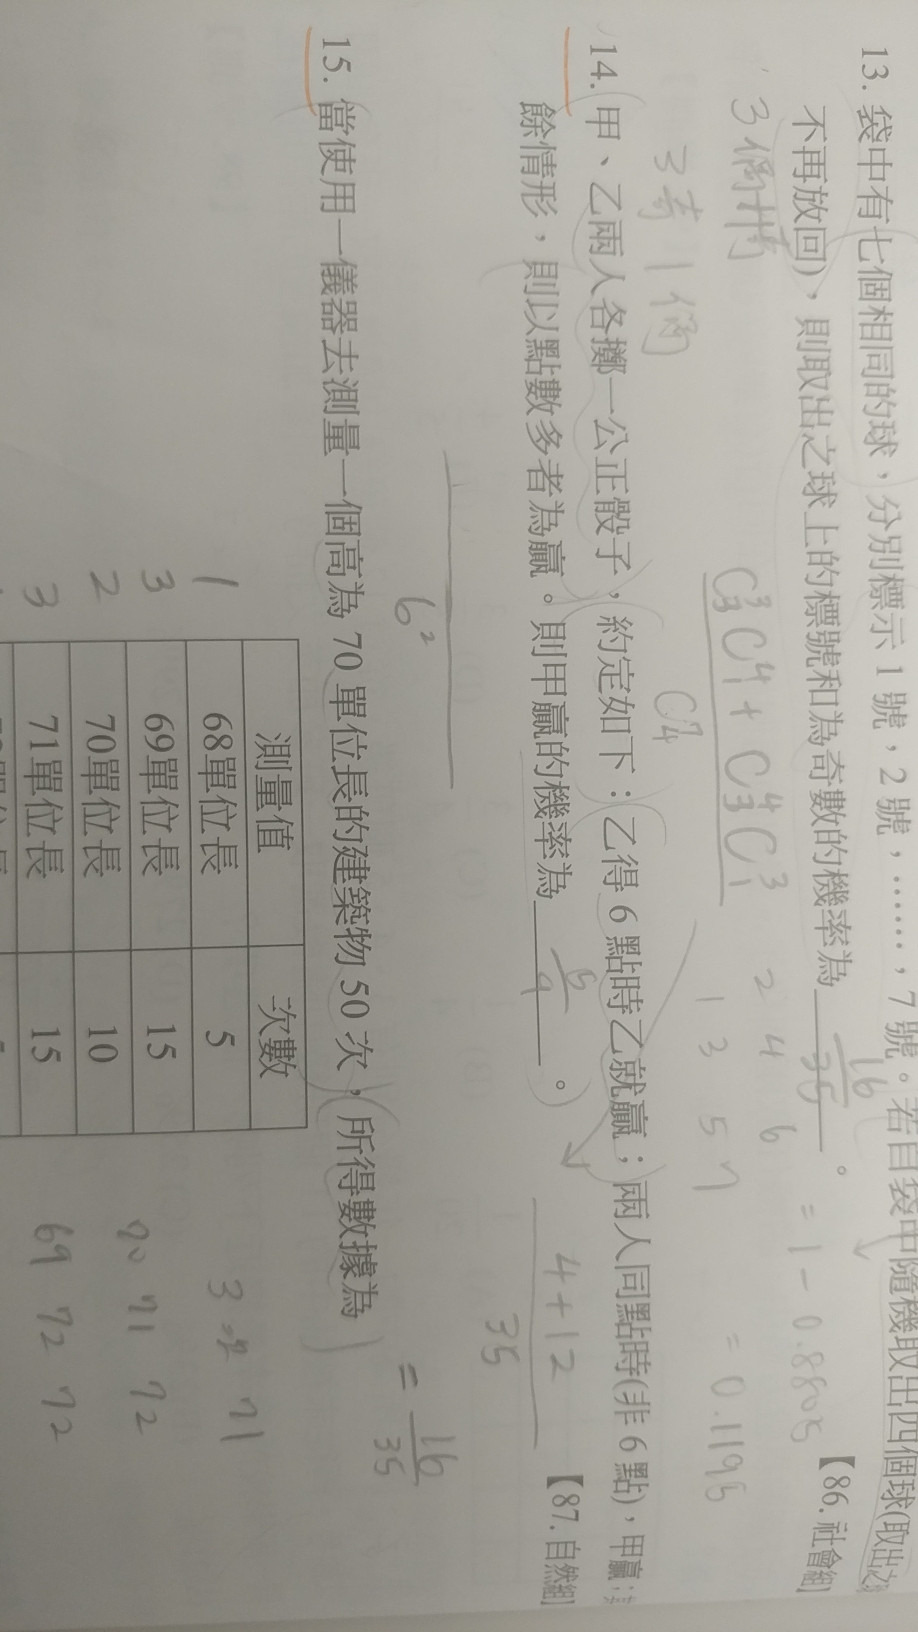 13. 袋中有七個相同的球，分別標示 1 號，2 號，……，7 號。若自袋中隨機取出四個球(取出之
不再放回)，則取出之球上的標號和為奇數的機率為 16/35 。
【86. 社會組】
3 偶 1 奇
3 奇 1 偶
C³₃C⁴₁ + C⁴₃C³₁
C⁷₄
2 4 6
1 3 5 7
= 1 - 0.8805
= 0.1195
14. 甲、乙兩人各擲一公正骰子，約定如下：乙得 6 點時乙就贏；兩人同點時(非 6 點)，甲贏；其
餘情形，則以點數多者為贏。則甲贏的機率為 5/9 。
【87. 自然組】
4+12
35
6²
= 16/35
15. 當使用一儀器去測量一個高為 70 單位長的建築物 50 次，所得數據為
測量值 次數
1 68單位長 5
3 69單位長 15
2 70單位長 10
3 71單位長 15
71
70 71 72
69 72 72